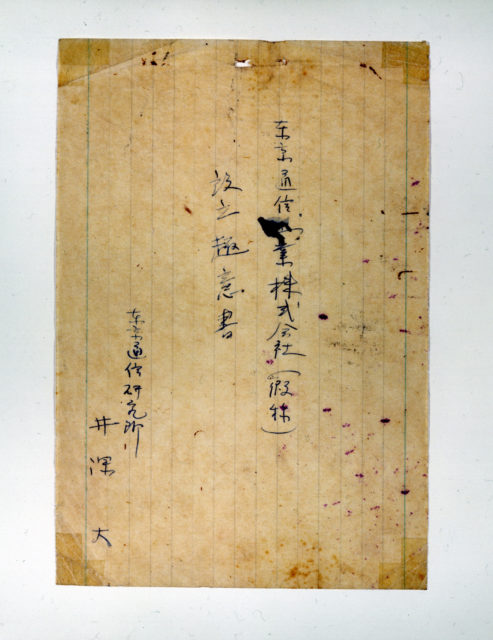 東京通信業株式会社（假称）
設立趣意書
東京通信研究所
井深 大